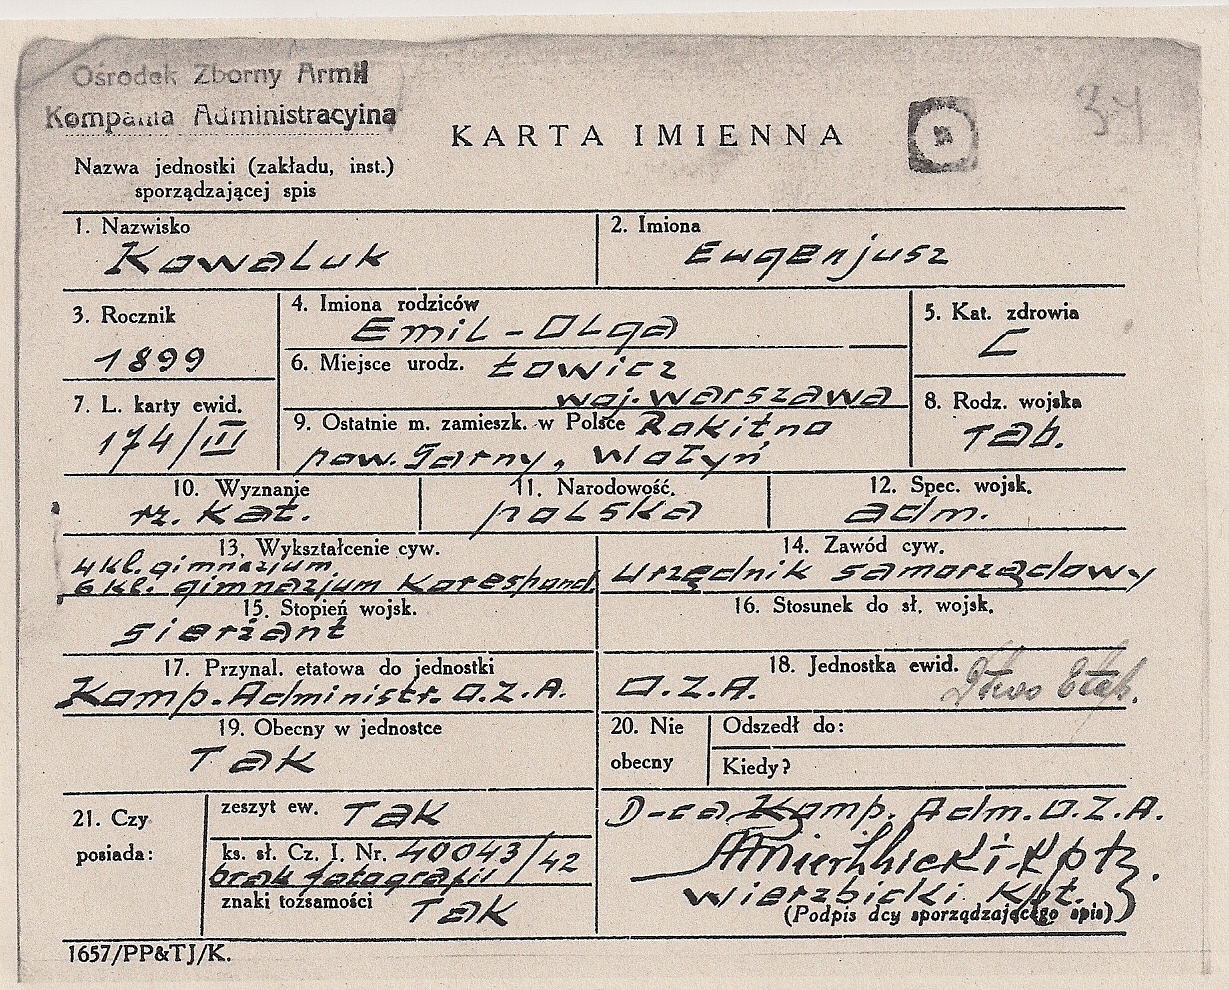 Ośrodek Zborny Armii
Kompania Administracyjna
37
KARTA IMIENNA
Nazwa jednostki (zakładu, inst.)
sporządzającej spis
1. Nazwisko
Kowaluk
2. Imiona
Eugenjusz
3. Rocznik
1899
4. Imiona rodziców
Emil - Olga
5. Kat. zdrowia
C
6. Miejsce urodz. Łowicz
woj. warszawa
7. L. karty ewid.
174/III
8. Rodz. wojska
Tab.
9. Ostatnie m. zamieszk. w Polsce Rokitno
pow. Sarny, Wołyń
10. Wyznanie
rz. kat.
11. Narodowość.
polska
12. Spec. wojsk.
adm.
13. Wykształcenie cyw.
4 kl. gimnazjum
6 kl. gimnazjum korespond.
14. Zawód cyw.
urzędnik samorządowy
15. Stopień wojsk.
sierżant
16. Stosunek do sł. wojsk.
17. Przynal. etatowa do jednostki
Komp. Administr. O.Z.A.
18. Jednostka ewid.
O.Z.A.
19. Obecny w jednostce
Tak
20. Nie
obecny
Odszedł do:
Kiedy?
21. Czy
posiada:
zeszyt ew. Tak
ks. sł. Cz. I. Nr. 40043/42
brak fotografii
znaki tożsamości Tak
D-ca Komp. Adm. O.Z.A.
Wierzbicki Kpt.
(Podpis dcy sporządzającego spis)
1657/PP&TJ/K.